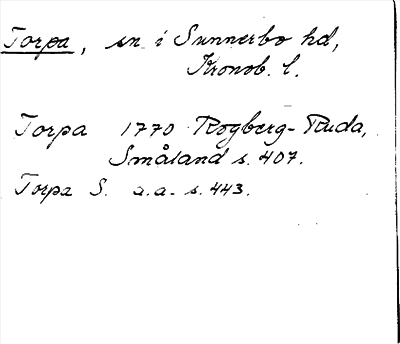 Torpa, sn i Sunnerbo hd,
Kronob. l.
Torpa 1770 Rogberg-Ruda,
Småland s. 407.
Torpa S. a.a. s. 443.